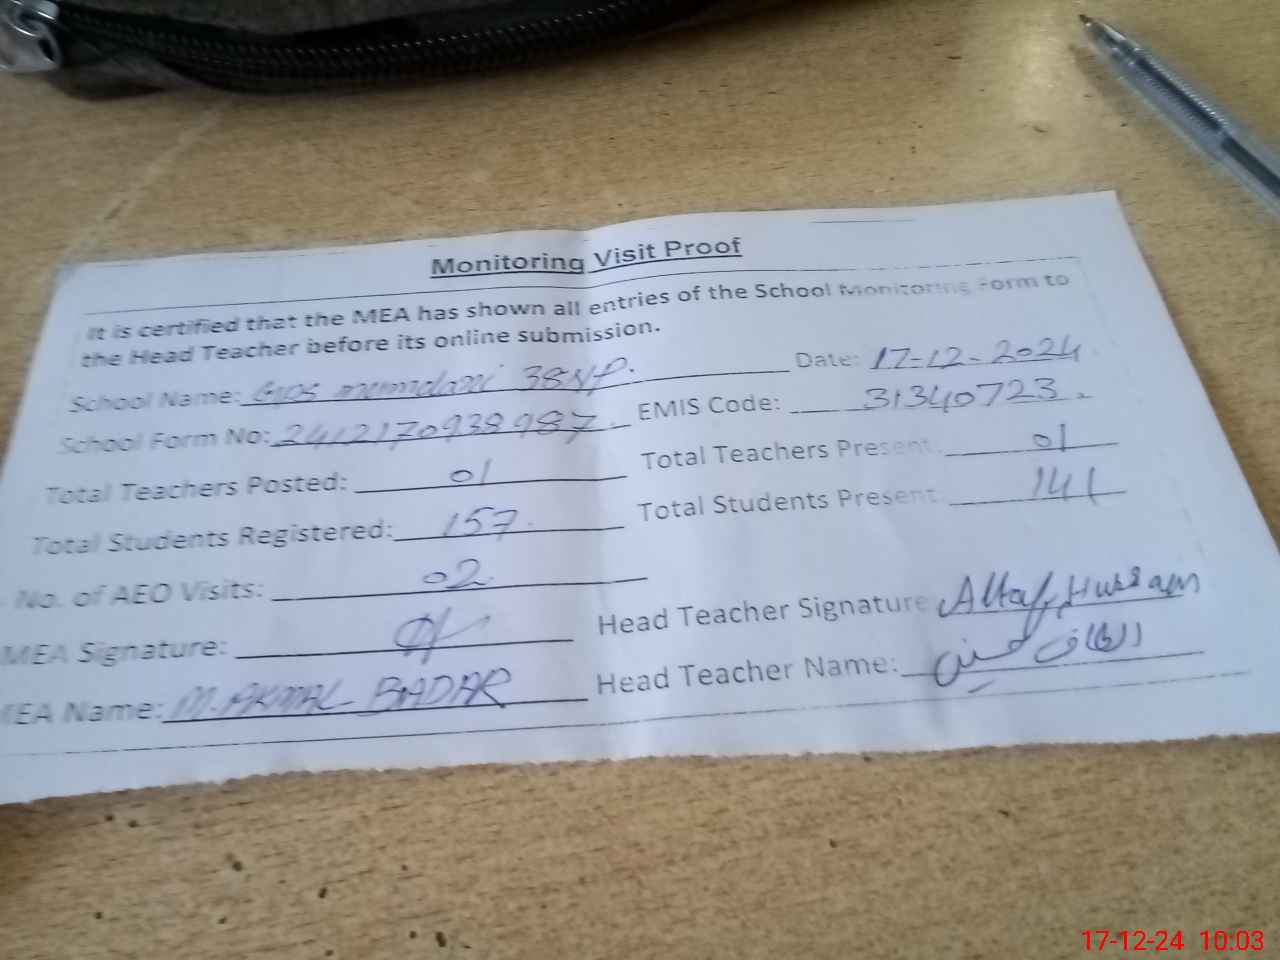 Monitoring Visit Proof
It is certified that the MEA has shown all entries of the School Monitoring Form to
the Head Teacher before its online submission.
School Name: 38NP. Date: 17-12-2024
School Form No: 2412170938987. EMIS Code: 31340723.
Total Teachers Posted: 01 Total Teachers Present: 01
Total Students Registered: 157. Total Students Present: 141
No. of AEO Visits: 02
MEA Signature: Head Teacher Signature Altaf Hussain
MEA Name: M. AKMAL BADAR Head Teacher Name: الطاف حسین
17-12-24 10:03